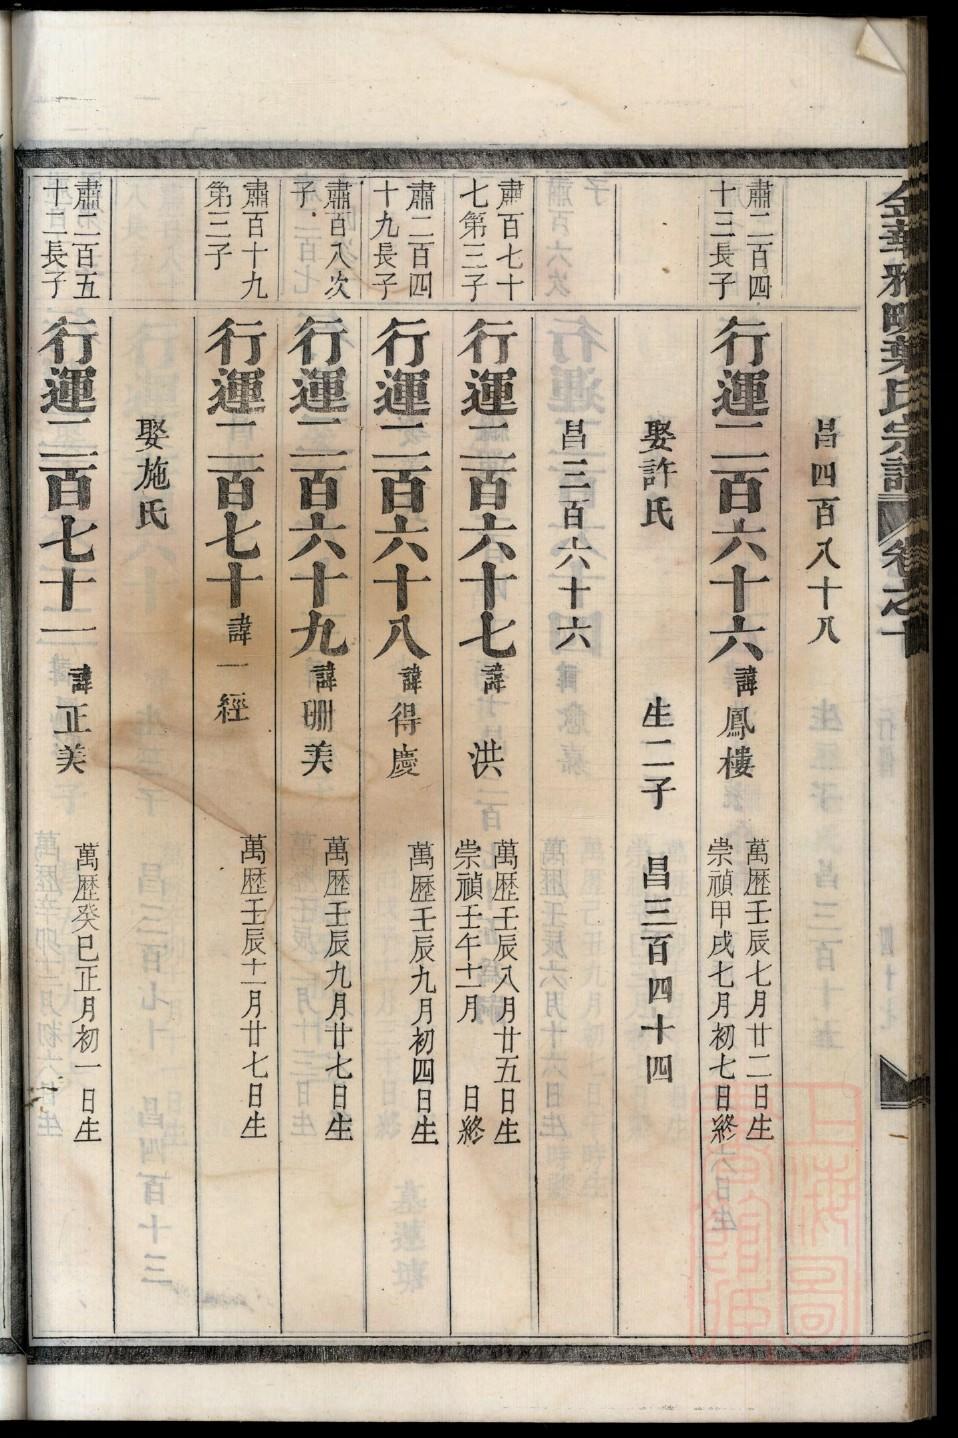 金華雅畈葉氏宗譜 卷之十
昌四百八十八
肅二百四十三長子
行運二百六十六 諱鳳樓 萬歷壬辰七月廿二日生 崇禎甲戌七月初七日終
娶許氏 生二子 昌三百四十四
昌三百六十六
肅百七十七第三子
行運二百六十七 諱洪 萬歷壬辰八月廿五日生 崇禎壬午十一月 日終
肅二百四十九長子
行運二百六十八 諱得慶 萬歷壬辰九月初四日生
肅百八次子
行運二百六十九 諱珊美 萬歷壬辰九月廿七日生
肅百十九第三子
行運二百七十 諱一經 萬歷壬辰十一月廿七日生
娶施氏
肅二百五十二長子
行運二百七十一 諱正美 萬歷癸巳正月初一日生